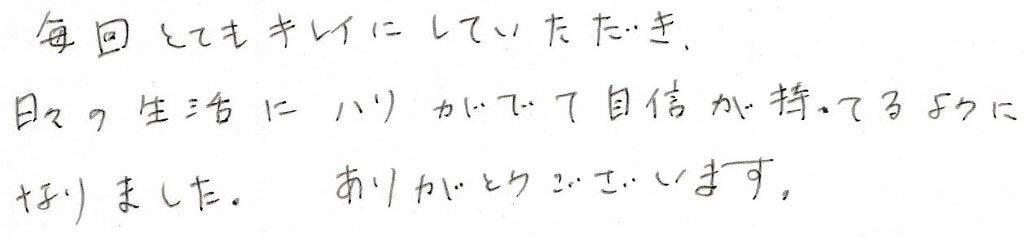 毎回とてもキレイにしていただき、
日々の生活にハリがでて自信が持てるように
なりました。 ありがとうございます。